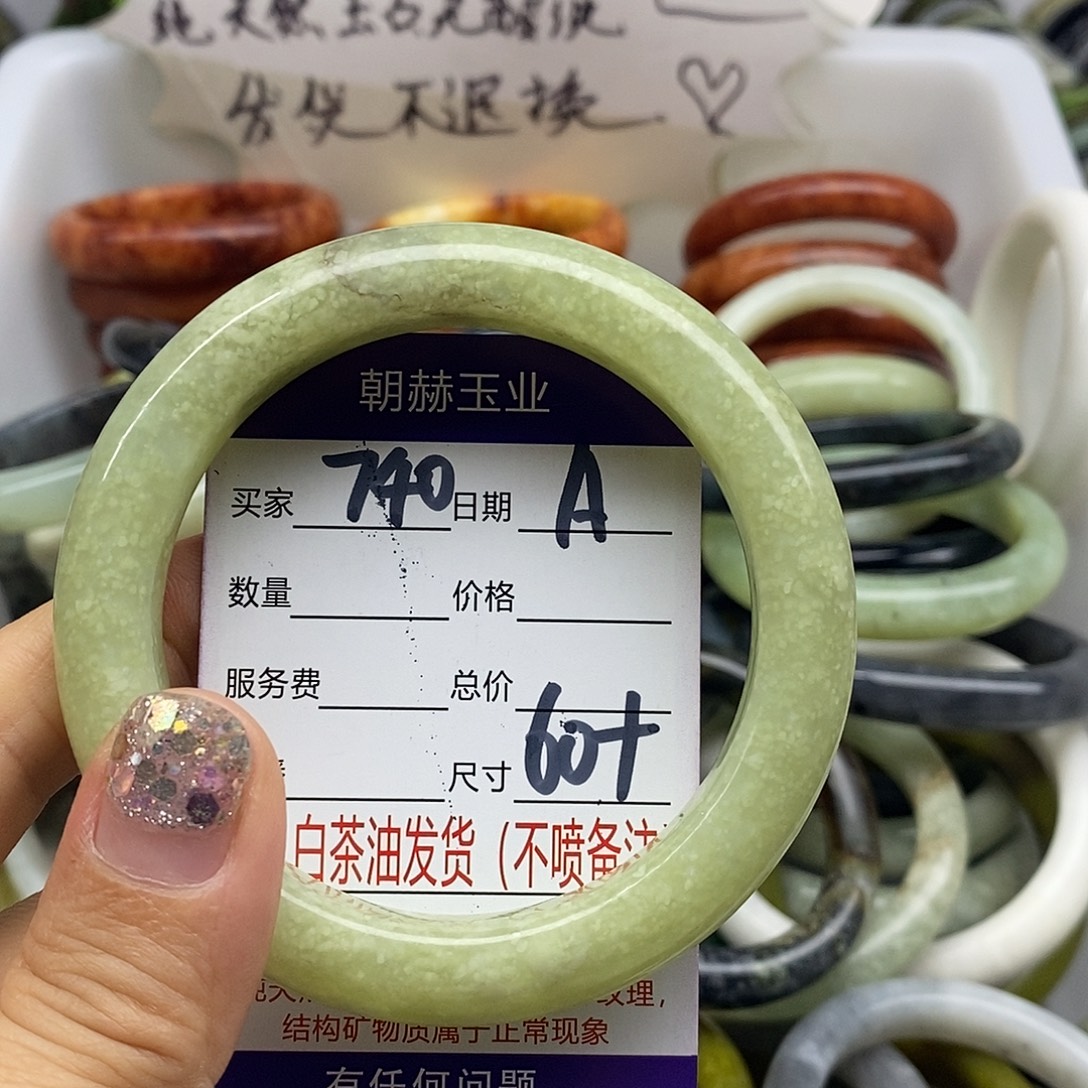 纯天然玉石无醋洗
售出不退换
朝赫玉业
买家 740 日期 A
数量 价格
服务费 总价
尺寸 60+
白茶油发货（不喷备注
纹理，
结构矿物质属于正常现象
有任何问题